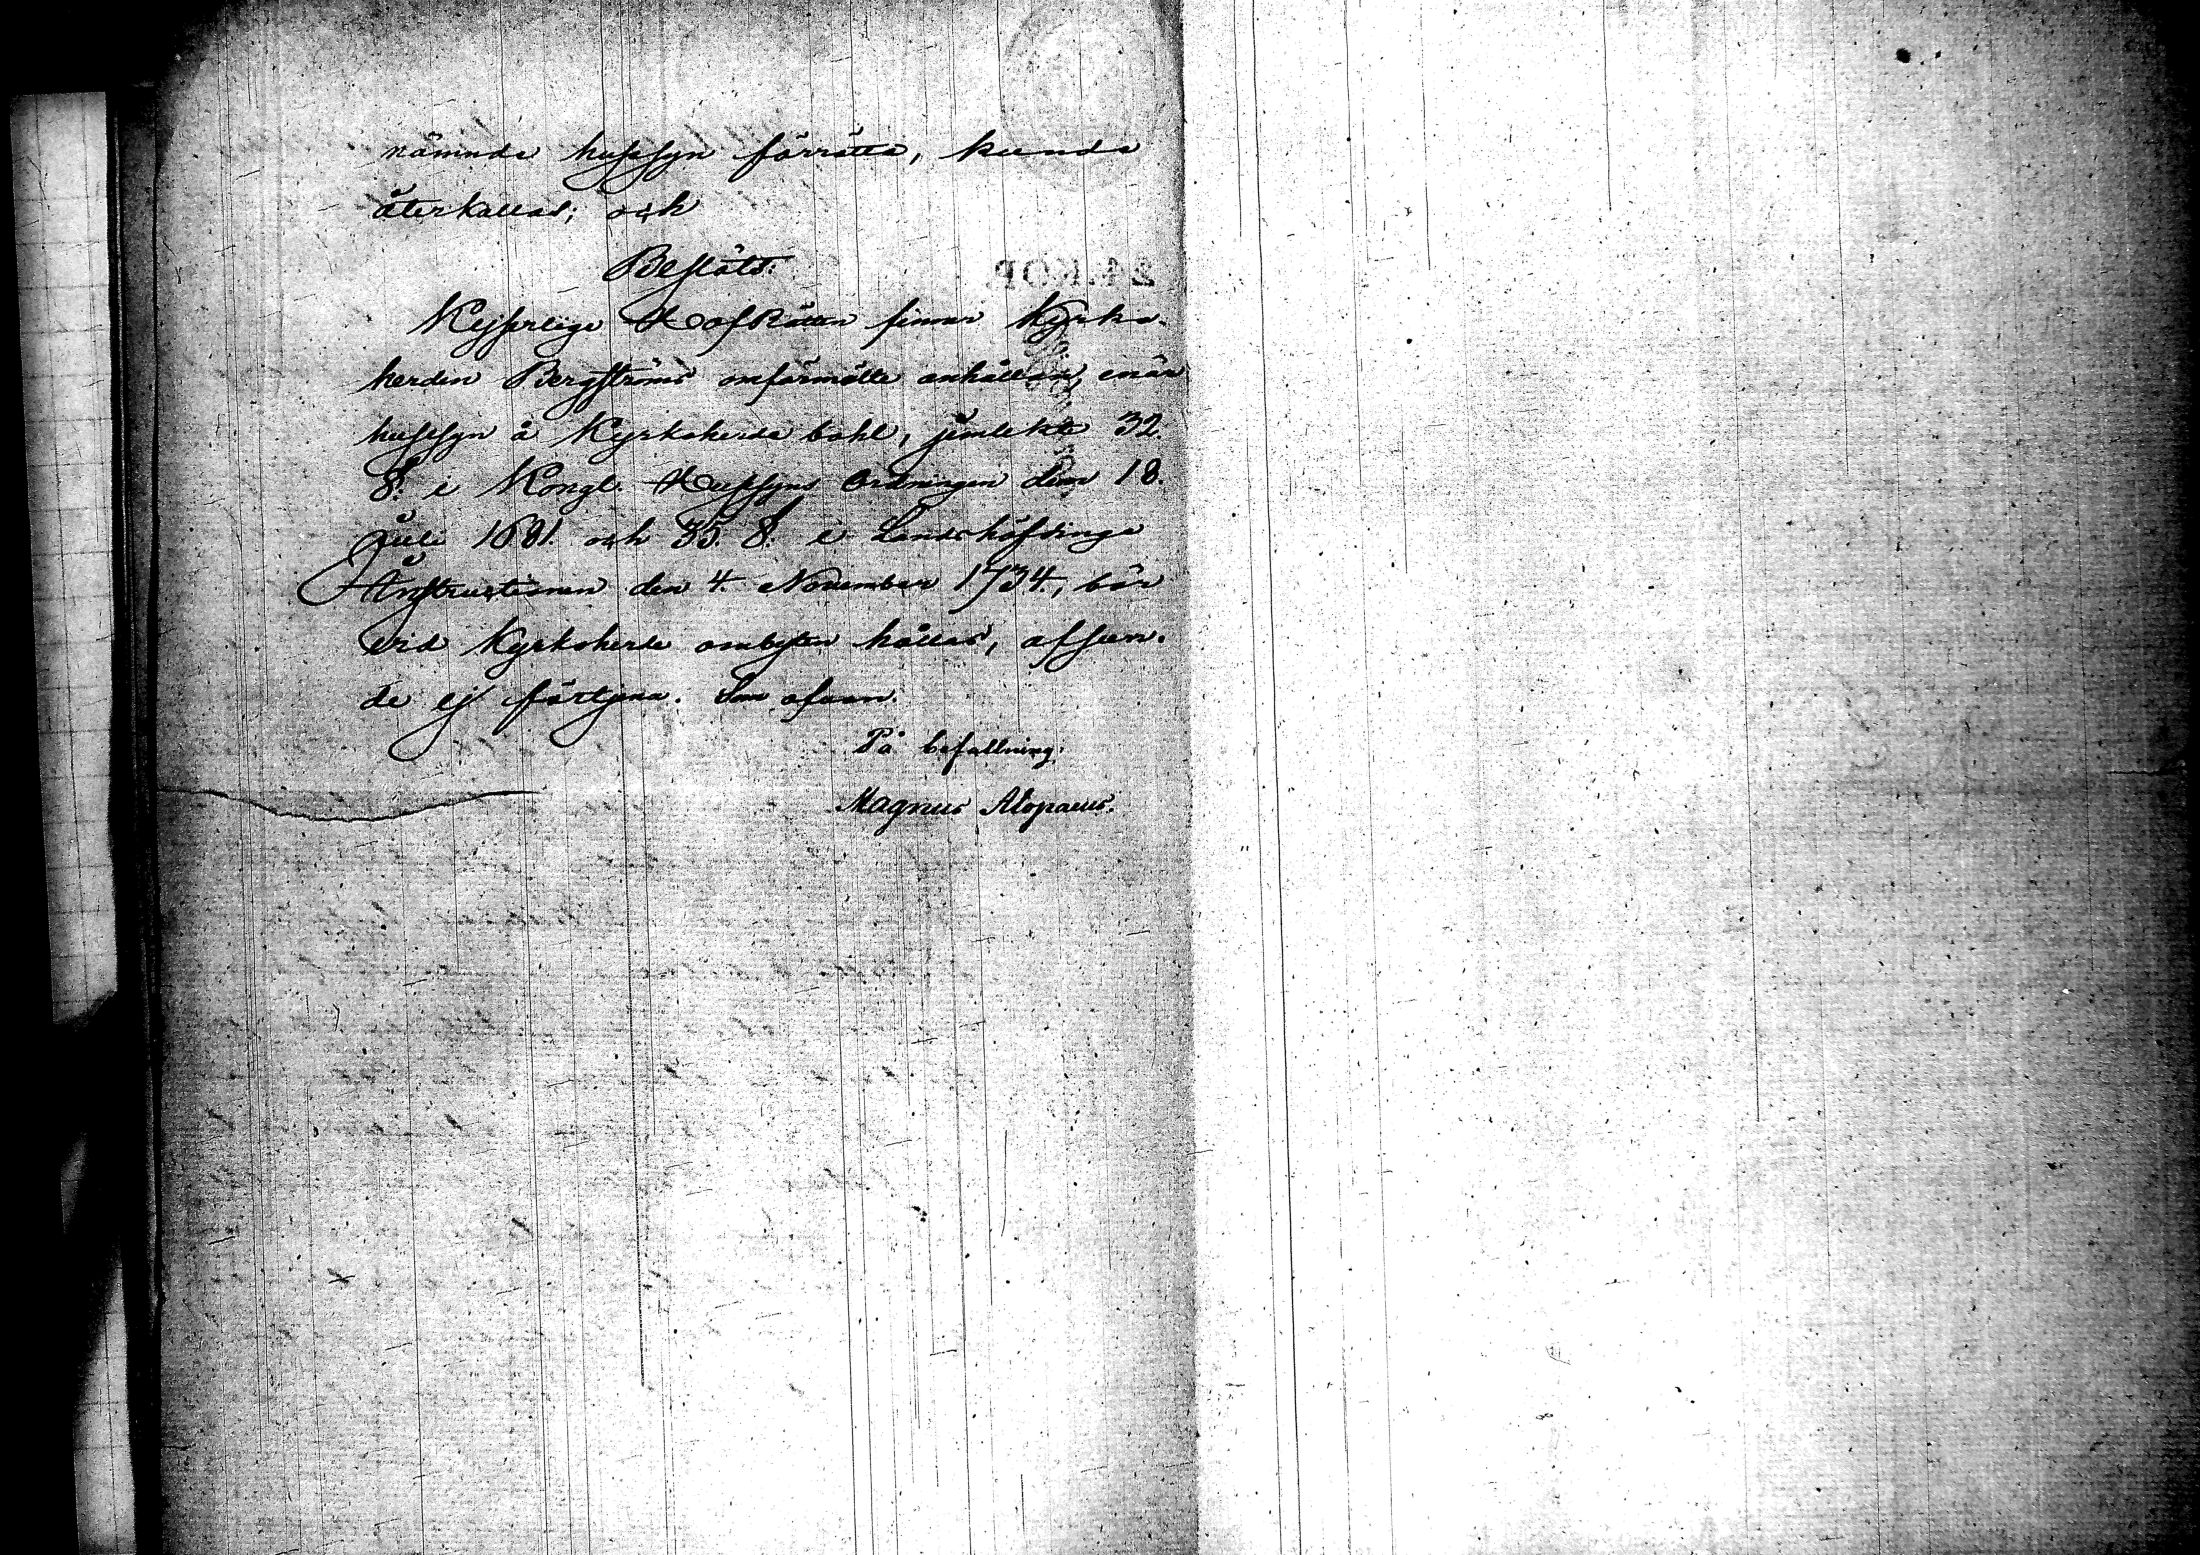 nämnda hussyn förrätta, kunde
återkallas; och
Beslöts:
Kejserlige HofRätten finner Kyrko-
herden Bergströms omförmälte anhållan, enär
hussyn å Kyrkoherde bohl, jemlikt 32.
§. i Kongl. Hussyns Ordningen den 18.
Juli 1681. och 35. §. i Landshöfdinge
Instructionen den 4. November 1734., bör
vid Kyrkoherde ombyten hållas, afseen-
de ej förtjena. Som ofvan.
På befallning:
Magnus Alopaeus.
24. KOP.